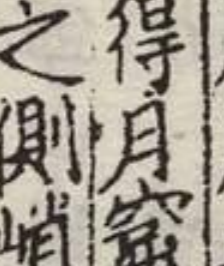 得月
之側峭